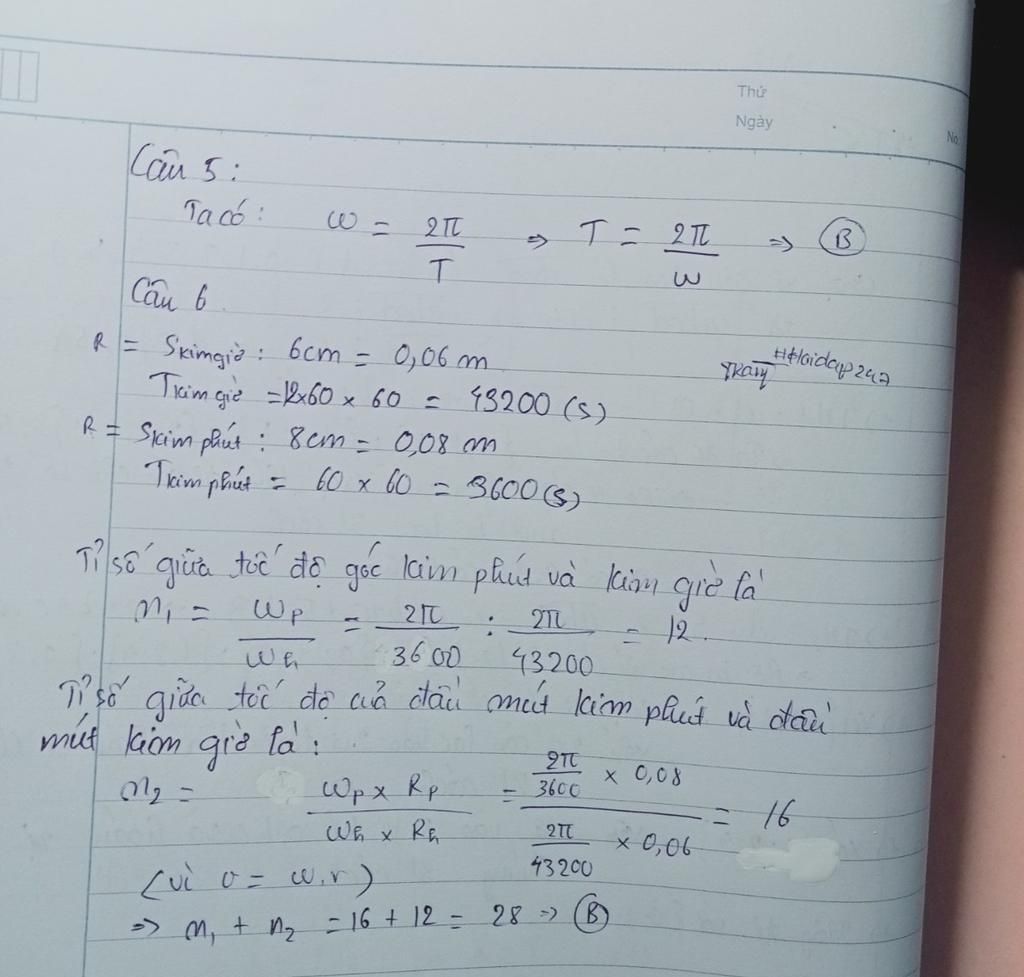 Thứ
Ngày
No.
Câu 5:
Ta có: ω = 2π/T => T = 2π/ω => B
Câu 6
R = Skim giờ: 6cm = 0,06 m
#Hoidap247
Tkim giờ = 12x60 x 60 = 43200 (s)
R = Skim phút: 8cm = 0,08 m
Tkim phút = 60 x 60 = 3600 (s)
Tỉ số giữa tốc độ góc kim phút và kim giờ là
n₁ = ωp/ωh = 2π/3600 : 2π/43200 = 12.
Tỉ số giữa tốc độ của đầu mút kim phút và đầu
mút kim giờ là:
n₂ = (ωp x Rp)/(ωh x Rh) = (2π/3600 x 0,08)/(2π/43200 x 0,06) = 16
(vì v = ω.r)
=> n₁ + n₂ = 16 + 12 = 28 => B